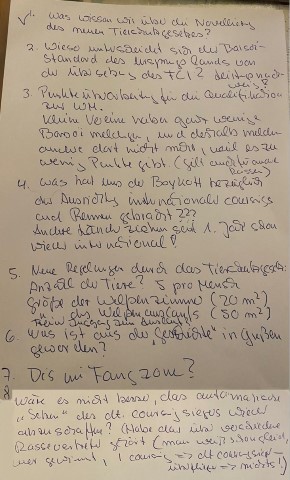 1. was wissen wir über die Novellierung
des neuen Tierschutzgesetzes?
2. Wieso unterscheidet sich der Barsoi-
Standard des Ursprungslands von
der Übersetzung des FCI?
3. Punkteübervorteilung für die Qualifikation
zur WM.
Kleine Vereine haben ganz wenige
Barsoi meldungen, und deshalb melden
andere dort nicht mit, weil es zu
wenig Punkte gibt. (gilt auch für andere
Rassen)
4. was hat uns der Boykott bezüglich
der Ausrichtg internationale coursings
und Rennen gebracht???
Andere Länder ziehen seit 1. Jahr schon
wieder international!
5. Neue Regelungen durch das Tierschutzgesetz:
Anzahl der Tiere? 5 pro Mensch
größe der Welpenzimmer (20 m²)
des Welpenauslaufs (50 m²)
6. was ist aus der "Geschichte" in Gießen
geworden?
7. Dis mi Fangzone?
8 wäre es nicht besser, das automatische
"Sehen" des dt. coursingsieges wieder
abzuschaffen? Habe das von verschiedene
Rassevertreter gehört (man weiß schon gleich,
wer gewinnt, 1 coursing => dt coursingsieger
=> nichts!)